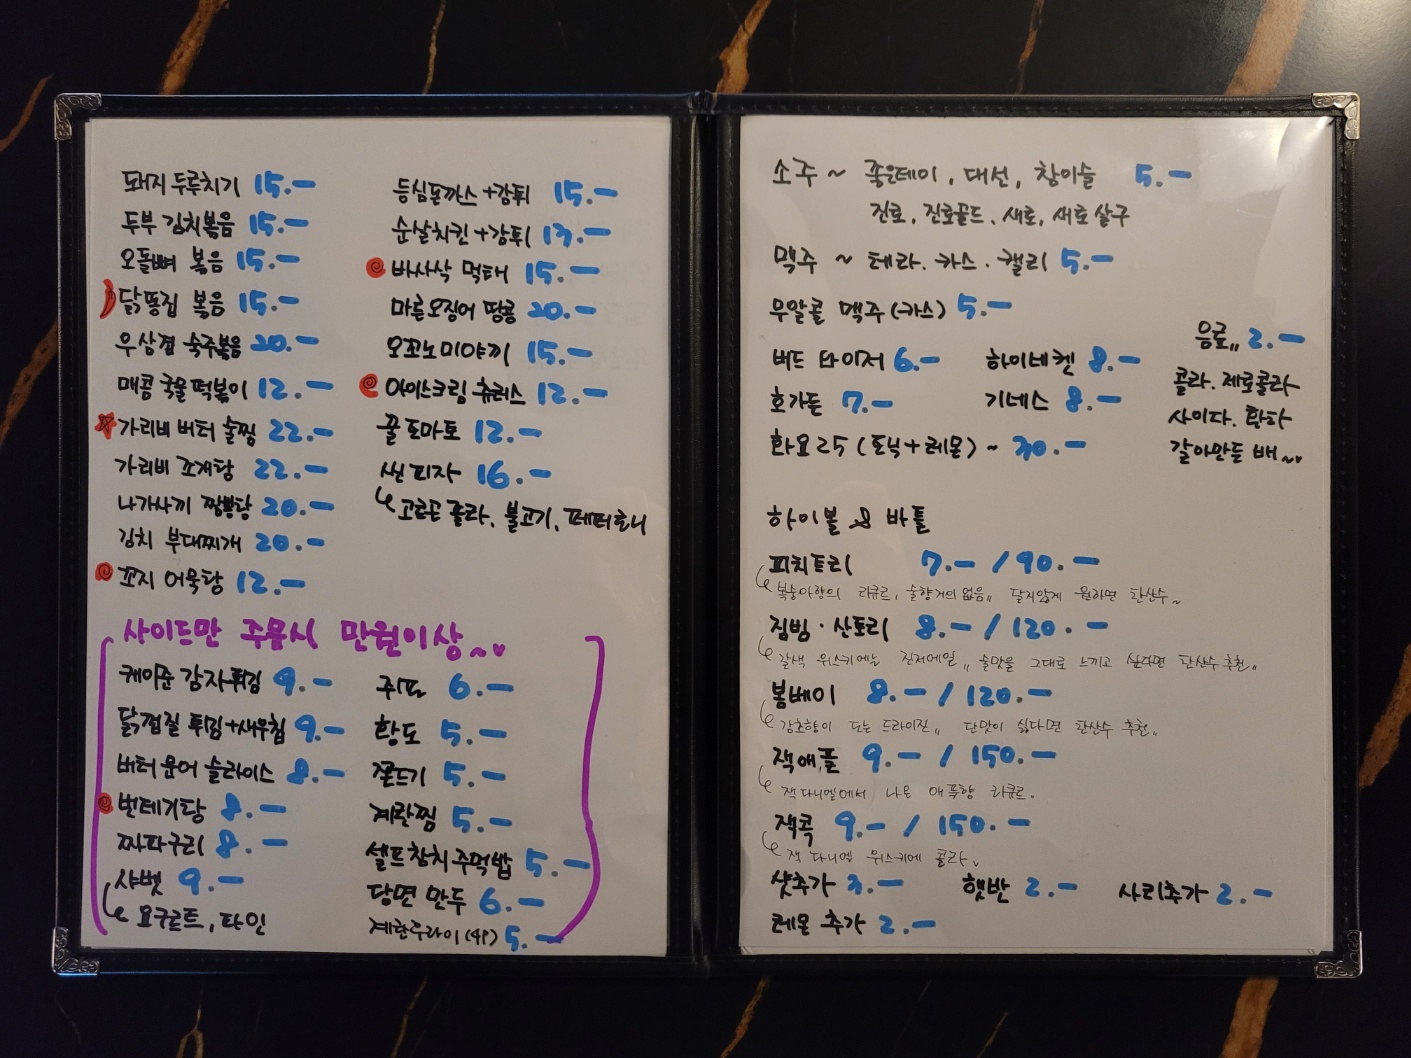 돼지 두루치기 15.-
두부 김치볶음 15.-
오돌뼈 볶음 15.-
닭똥집 볶음 15.-
우삼겹 숙주볶음 20.-
매콤 국물떡볶이 12.-
가리비 버터 술찜 22.-
가리비 조개탕 22.-
나가사끼 짬뽕탕 20.-
김치 부대찌개 20.-
꼬지 어묵탕 12.-
등심돈까스+감튀 15.-
순살치킨+감튀 13.-
바사삭 먹태 15.-
마른오징어 땅콩 20.-
오꼬노미야끼 15.-
아이스크림 츄러스 12.-
꿀토마토 12.-
씬피자 16.-
고르곤졸라, 불고기, 페퍼로니
사이드만 주문시 만원이상~
케이준 감자튀김 9.-
닭껍질 튀김+새우칩 9.-
버터문어 슬라이스 8.-
번데기탕 8.-
짜파구리 8.-
샤벳 9.-
요구르트, 파인
쥐포 6.-
황도 5.-
쫀드기 5.-
계란찜 5.-
셀프참치주먹밥 5.-
당면 만두 6.-
계란후라이(4P) 5.-
소주 ~ 좋은데이, 대선, 참이슬 5.-
진로, 진로골드, 새로, 새로살구
맥주 ~ 테라. 카스. 켈리 5.-
무알콜 맥주(카스) 5.-
버드 와이저 6.- 하이네켄 8.-
호가든 7.- 기네스 8.-
화요25 (토닉+레몬) ~ 30.-
음료 2.-
콜라. 제로콜라
사이다. 환타
갈아만든 배~
하이볼 & 바틀
피치트리 7.- / 90.-
복숭아향의 리큐르, 술향거의없음 달지않게 원하면 탄산수~
짐빔·산토리 8.- / 120.-
갈색 위스키에는 진저에일 술맛을 그대로 느끼고 싶다면 탄산수추천
봄베이 8.- / 120.-
감초향이 도는 드라이진 단맛이 싫다면 탄산수 추천
잭애플 9.- / 150.-
잭다니엘에서 나온 애플향 리큐르.
잭콕 9.- / 150.-
잭 다니엘 위스키에 콜라
샷추가 3.- 햇반 2.- 사리추가 2.-
레몬 추가 2.-